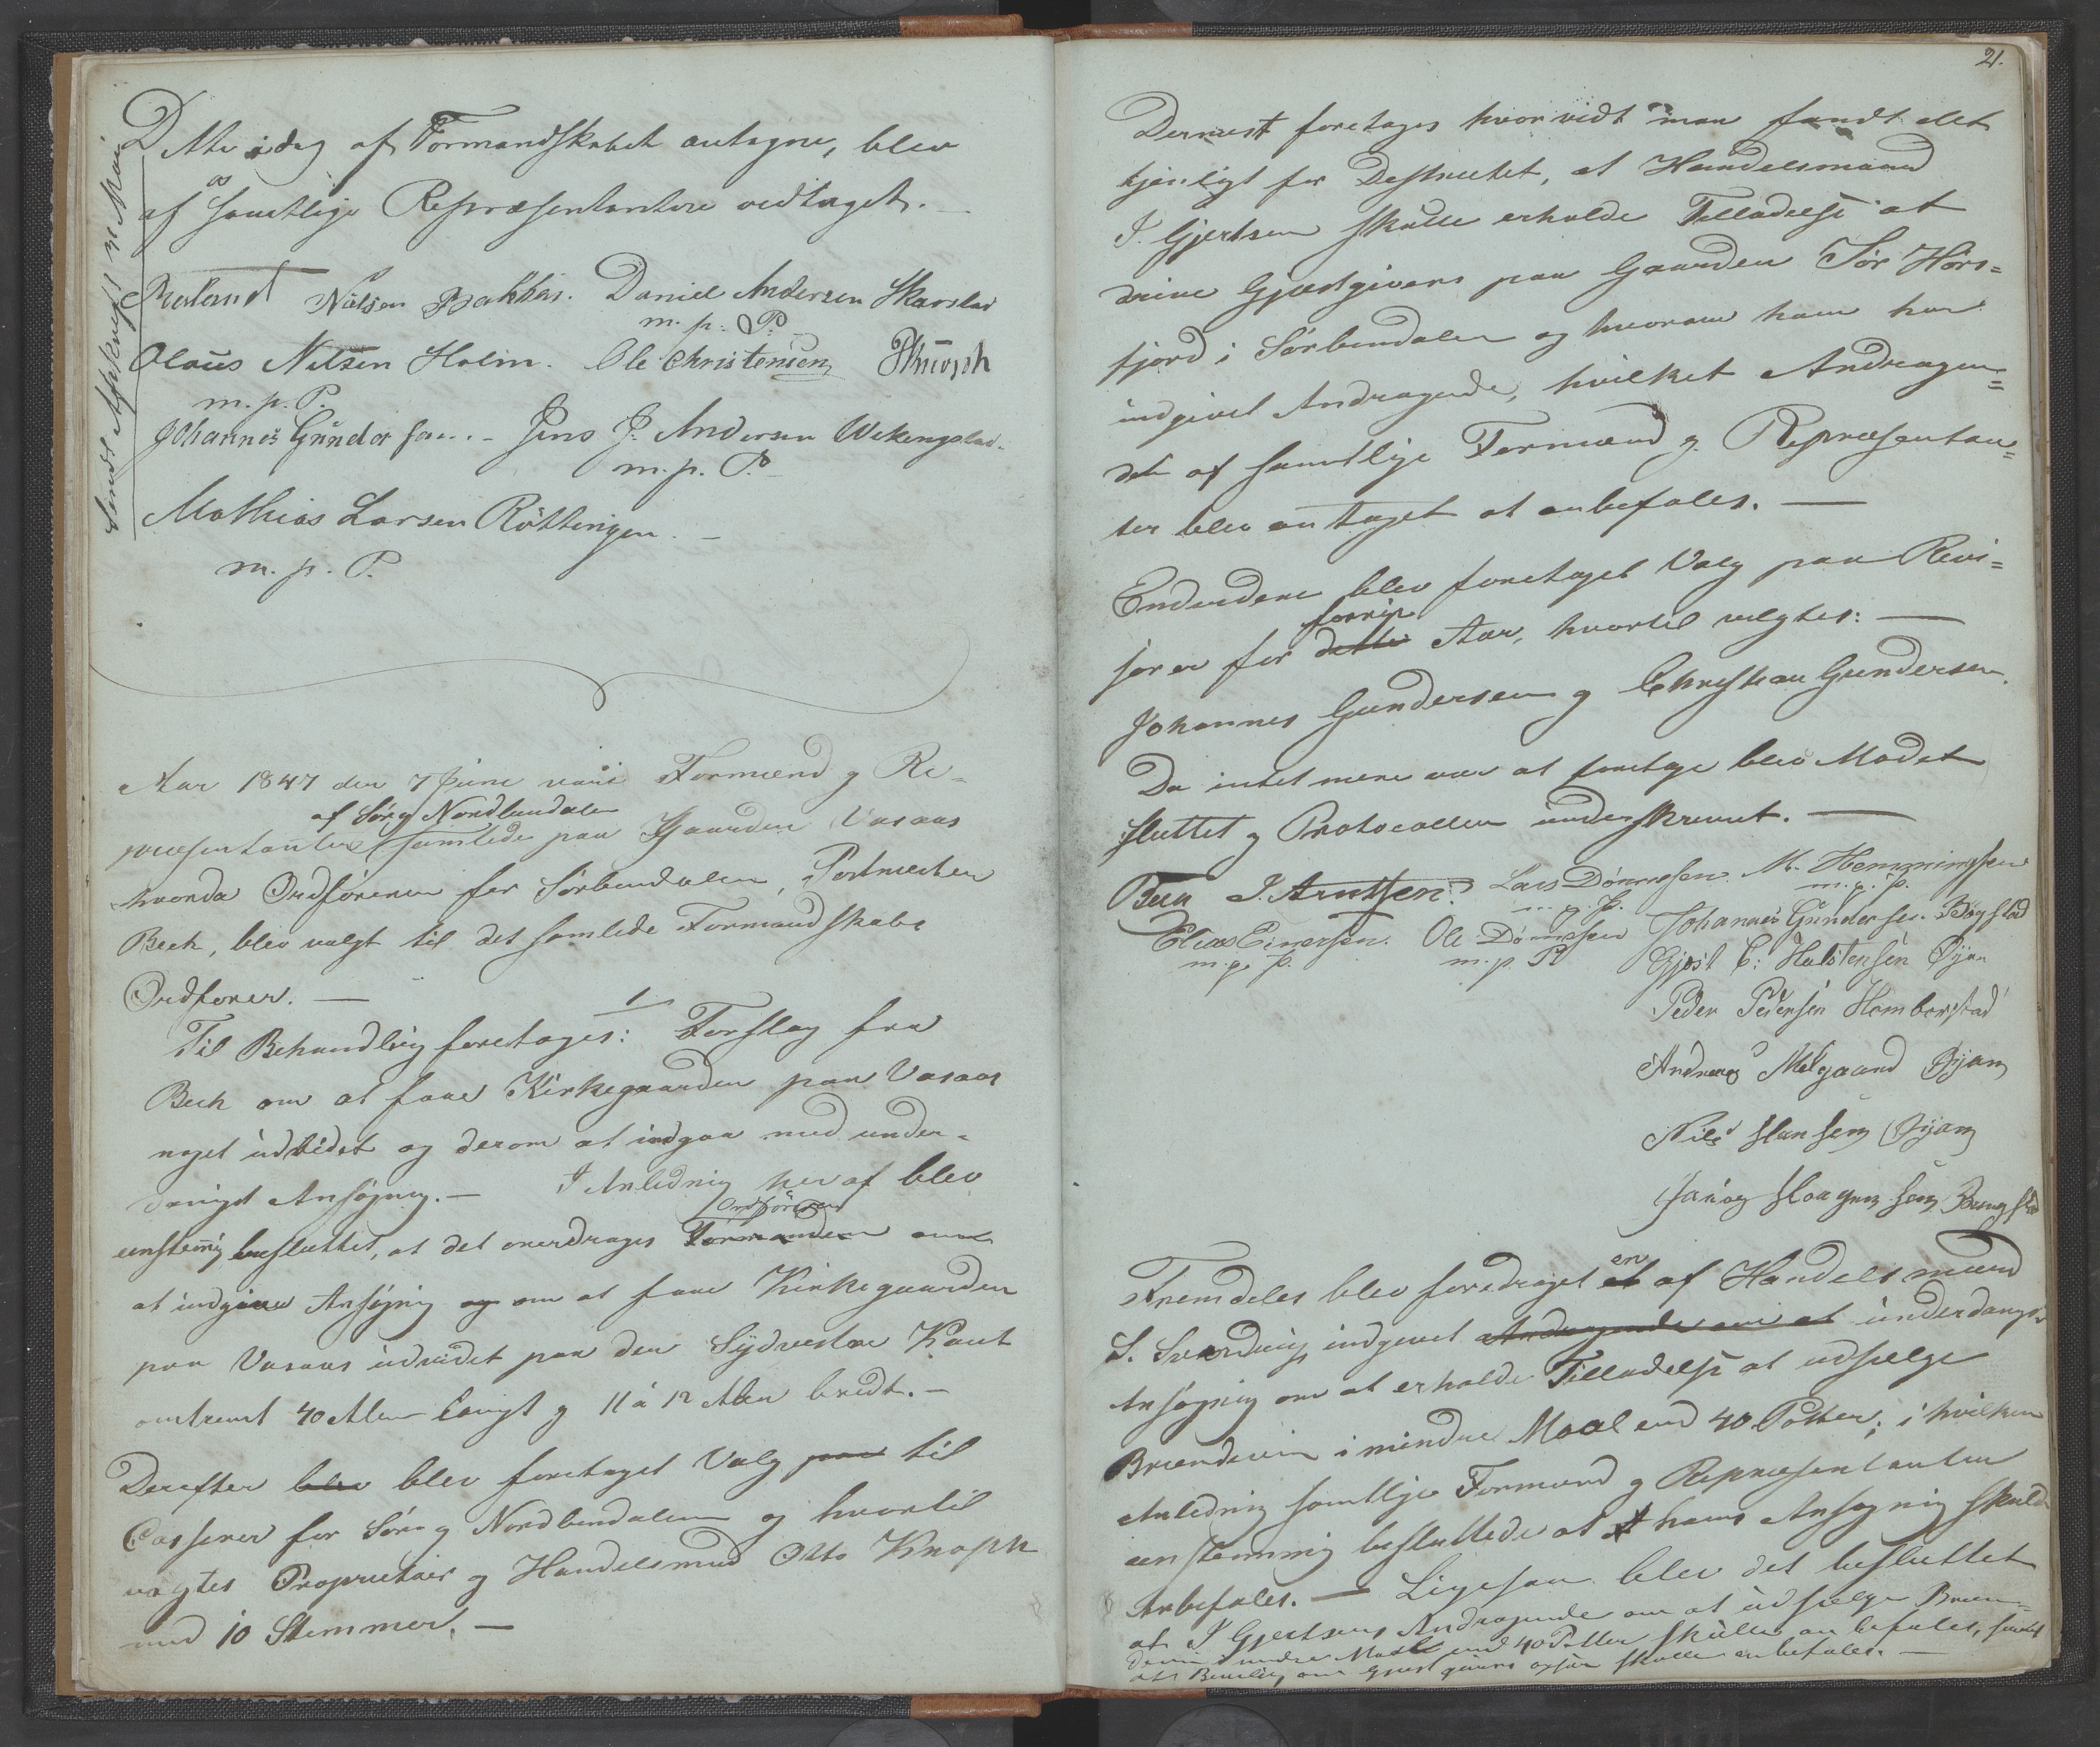 Dette idag af Formandskabet antagne, blev
os
af samtlige Repræsentantere vedtaget. —
Nilsen Bakkas. Daniel Andersen Skarstad
m. p. P.
Olaus Nilsen Holm. Ole Christensen Knoph
m. p. P.
Johannes Gunderssen. - Jens J. Andersen Wekengstad.
m. p. P.
Mathias Larsen Röttingen. —
m. p. P.
Sendt Afskrivft
Aar 1847 den 7 Juni vare Formænd og Re=
af Sör og Nordbindalen
præsentantere samlede paa Gaarden Vasaas
hvorda Ordföreren for Sörbindalen, Postmester
Beck, blev valgt til det samlede Formandskabs
Ordfører. —
1
Til Behandling foretoges: Forslag fra
Beck om at faae Kirkegaarden paa Vasaas
noget udvidet og derom at indgaa med under-
danigst Ansøgning. — I Anledning heraf blev
Ordföreren
eenstemig besluttet, at det overdrages Formanden
at indgive Ansögning og om at faae Kirkegaarden
paa Vasaas udvidet paa den Sydvestre Kant
omtrent 40 Alen langt og 11 à 12 Alen bredt. —
Derefter blev blev foretaget Valg paa til
Casserer for Sör og Nordbindalen og hvortil
valgtes Proprietair og Handelsmand Otto Knoph
med 10 Stemmer. —
21.
Dernæst foretoges hvorvidt man fandt det
tjenligt for Destrictet, at Handelsmand
J. Gjertsen skulle erholde Tilladelse at
drive Gjæstgiveri paa Gaarden Sör Hors=
fjord i Sörbindalen og hvorom han har
indgivet Andragende, hvilket Andragen=
de af samtlige Formænd og Repræsentan=
ter blev antaget at anbefales. —
Endvidere blev foretaget Valg paa Revi=
forrige
sorer for dette Aar, hvortil valgtes: —
Johannes Gundersen og Christian Gundersen.
Da intet mere var at foretage blev Mödet
sluttet og Protocollen underskrevet. —
Beck J. Arntsen. Lars Dønnessen. M. Hemmingsen
m. p. P. m. p. P.
Elias Einersen. Ole Dønnessen Johannes Gundersen. Bøgstad
m. p. P. m. p. P. Gjøst C: Halstensen Øÿan
Peder Pedersen Hamborstad
Andreas Melgaard Øyan
Nils Hansen Øyan
Haagensen
Fremdeles blev foredraget et en af Handelsmand
S. Sverdrup indgivet Andragende om at underdanigst
Ansögning om at erholde Tilladelse at udsælge
Brændeviin i mindre Maal end 40 Potter; i hvilken
Anledning samtlige Formænd og Repræsentanter
eenstemmig besluttede at hans Ansøgning skulde
Anbefales. — Ligesaa blev det besluttet
at J Gjertsens Andragende om at udsælge Bræn=
deviin i mindre Maal end 40 Potter skulle anbefales, samt
at Bevilling om Gjæstgiveri ogsaa skulle anbefales. —